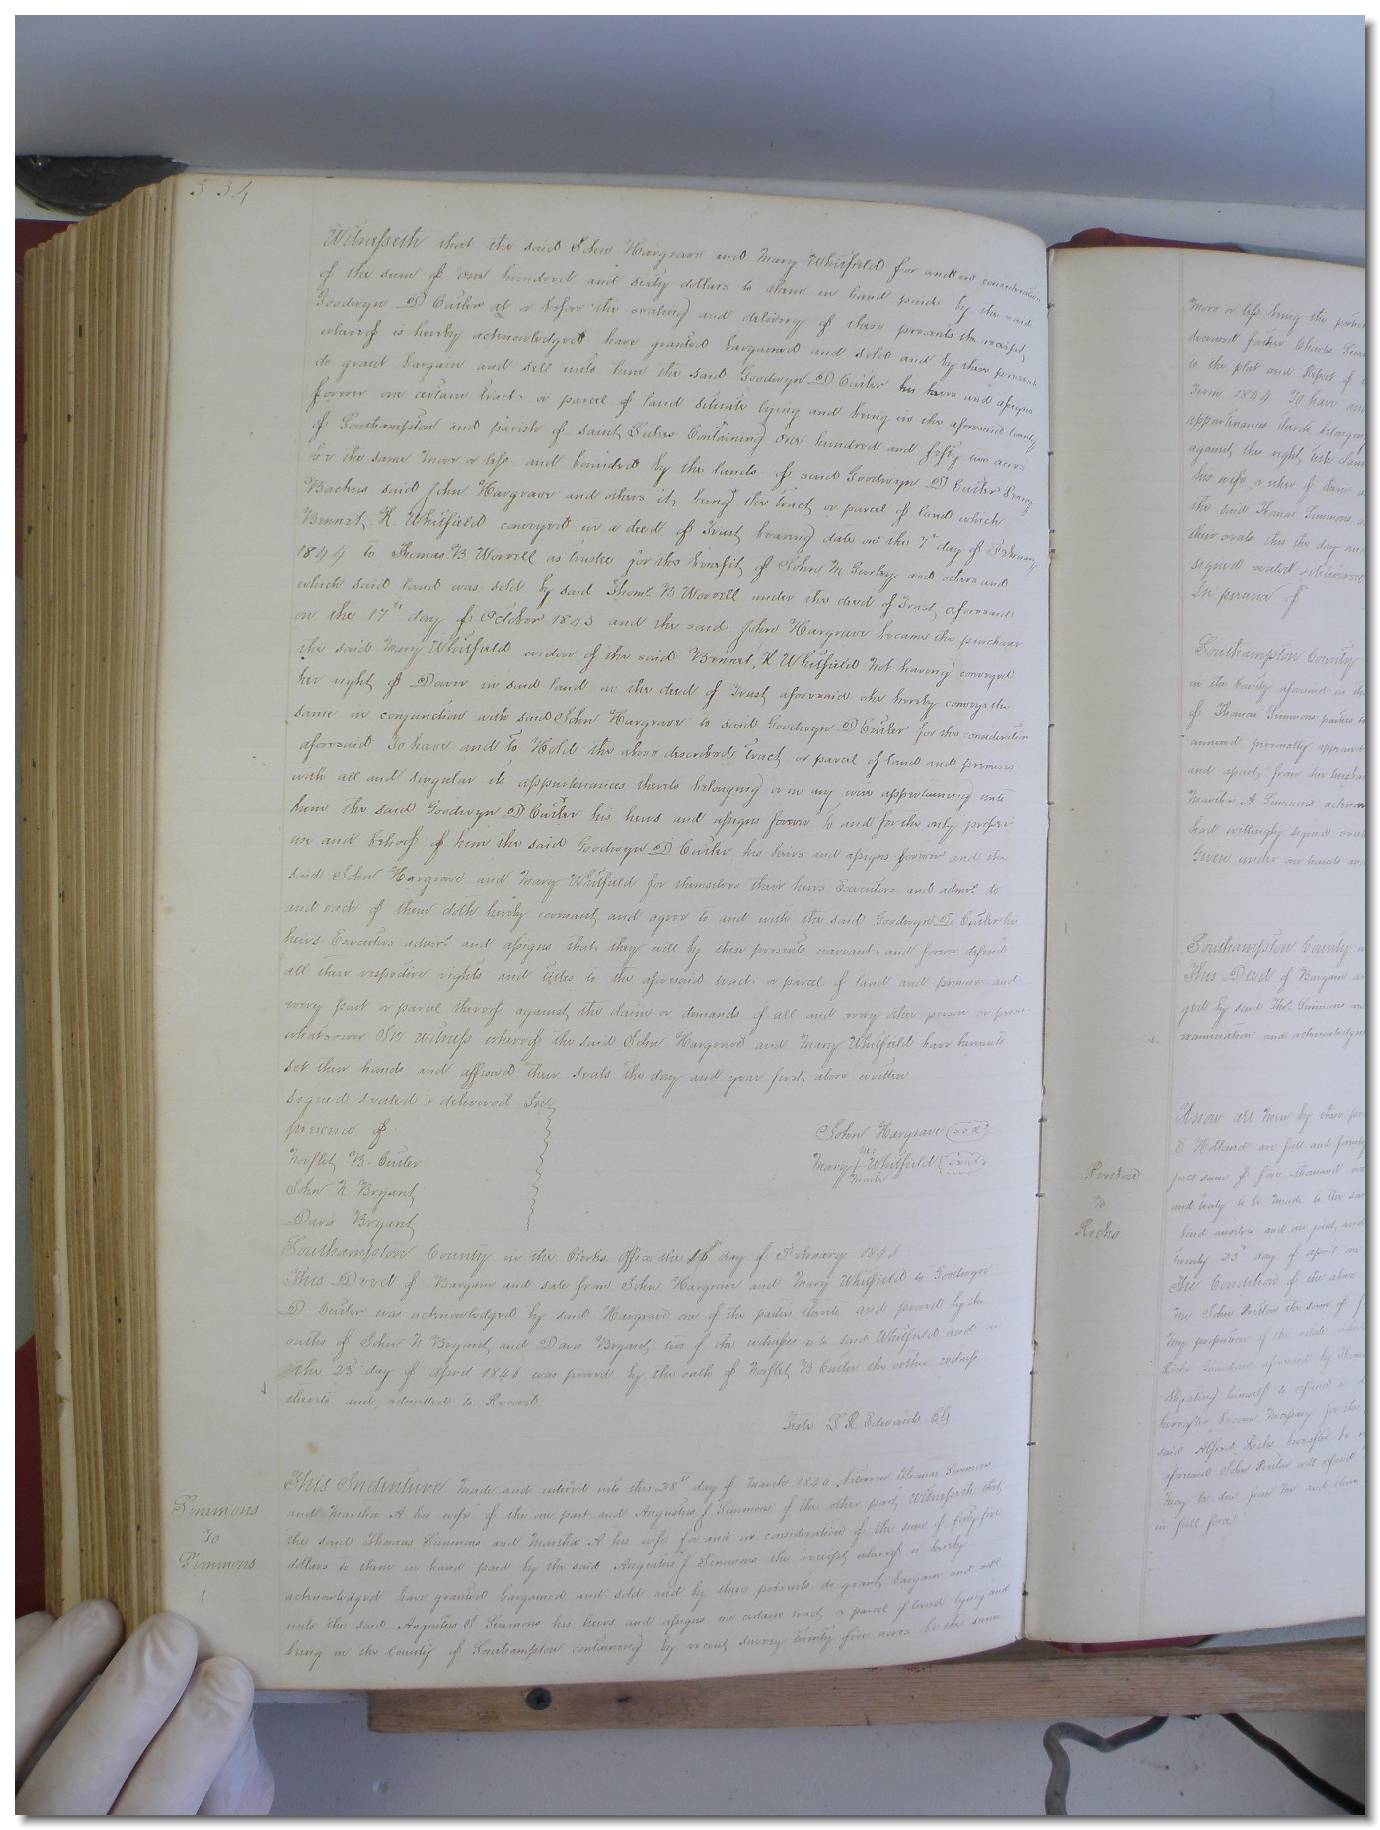 334
Witnesseth that the said John Hargrave and Mary Whitfield for and in consideration
of the sum of one hundred and sixty dollars to them in hand paid by the said
Goodwyn D Cutler at or before the sealing and delivery of these presents the receipt
whereof is hereby acknowledged have granted bargained and sold and by these presents
do grant bargain and sell unto him the said Goodwyn D Cutler his heirs and assigns
forever one certain tract or parcel of land situate lying and being in the aforesaid County
of Southampton and parish of Saint Lukes Containing one hundred and fifty two acres
be the same more or less and bounded by the lands of said Goodwyn D Cutler
said John Hargrave and others it being the tract or parcel of land which
Bennet K Whitfield conveyed in a deed of Trust bearing date on the 7th day of February
1844 to Thomas B Worrell as trustee for the benefit of John M Gurley and others and
which said land was sold by said Thoms B Worrell under the deed of Trust aforesaid
on the 17th day of October 1845 and the said John Hargrave became the purchaser
the said Mary Whitfield widow of the said Bennet K Whitfield not having conveyed
her right of Dower in said land in the deed of Trust aforesaid she hereby conveys the
same in conjunction with said John Hargrave to said Goodwyn D Cutler for the consideration
aforesaid To have and to Hold the above described tract or parcel of land and premises
with all and singular its appurtenances thereto belonging or in any wise appertaining unto
him the said Goodwyn D Cutler his heirs and assigns forever to and for the only proper
use and behoof of him the said Goodwyn D Cutler his heirs and assigns forever and the
said John Hargrave and Mary Whitfield for themselves their heirs Executors and admrs do
and each of them doth hereby covenant and agree to and with the said Goodwyn D Cutler his
heirs Executors admrs and assigns that they will by these presents warrant and forever defend
all their respective rights and titles to the aforesaid tract or parcel of land and premises and
every part or parcel thereof against the claim or demands of all and every other person or persons
whatsoever In witness whereof the said John Hargrave and Mary Whitfield have hereunto
set their hands and affixed their seals the day and year first above written
Signed sealed & delivered In
presence of
John Hargrave (seal)
Norflet B. Cutler
her
Mary + Whitfield (seal)
mark
John N Bryant
Davis Bryant
Southampton County in the Clerks Office the 16th day of February 1846
This Deed of Bargain and sale from John Hargrave and Mary Whitfield to Goodwyn
D Cutler was acknowledged by said Hargrave one of the parties thereto and proved by the
oaths of John N Bryant and Davis Bryant two of the witnesses as to said Whitfield and in
the 23d day of April 1846 was proved by the oath of Norflet B Cutler the other witness
thereto and admitted to Record
Teste L R Edwards Clk
Simmons
To
Simmons
This Indenture Made and entered into this 28th day of March 1846 between Thomas Simmons
and Martha A his wife of the one part and Augustus J Simmons of the other part Witnesseth that
the said Thomas Simmons and Martha A his wife for and in consideration of the sum of forty five
dollars to them in hand paid by the said Augustus J Simmons the receipt whereof is hereby
acknowledged have granted bargained and sold and by these presents do grant bargain and sell
unto the said Augustus J Simmons his heirs and assigns one certain tract or parcel of land lying and
being in the County of Southampton containing by recent survey twenty five acres be the same
more or less being the
deceased father Charles
to the plat and Report of
Term 1844 To have and
appurtenances thereto
against the right title claim
his wife
the said Thomas Simmons
their seals this the day
signed sealed & delivered
In presence of
Southampton County
in the County aforesaid
of Thomas Simmons
annexed personally appeared
and apart from her husband
Martha A Simmons
had willingly signed
Given under our hands
Southampton County
This Deed of Bargain
ged by said Thos Simmons
examination and acknowledgment
Know all Men by these
Holland are
sum of five thousand
and truly to be made to the
bind ourselves
twenty 23d day of April
The Condition of the above
the sum of
Ricks
to
said Alfred Ricks
aforesaid
may be due from
in full force
Ricks